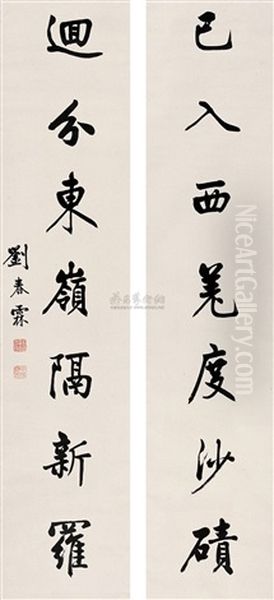 已入西羌度沙磧
迴分東嶺隔新羅
劉春霖
NiceArtGallery.com
NiceArtGallery.com